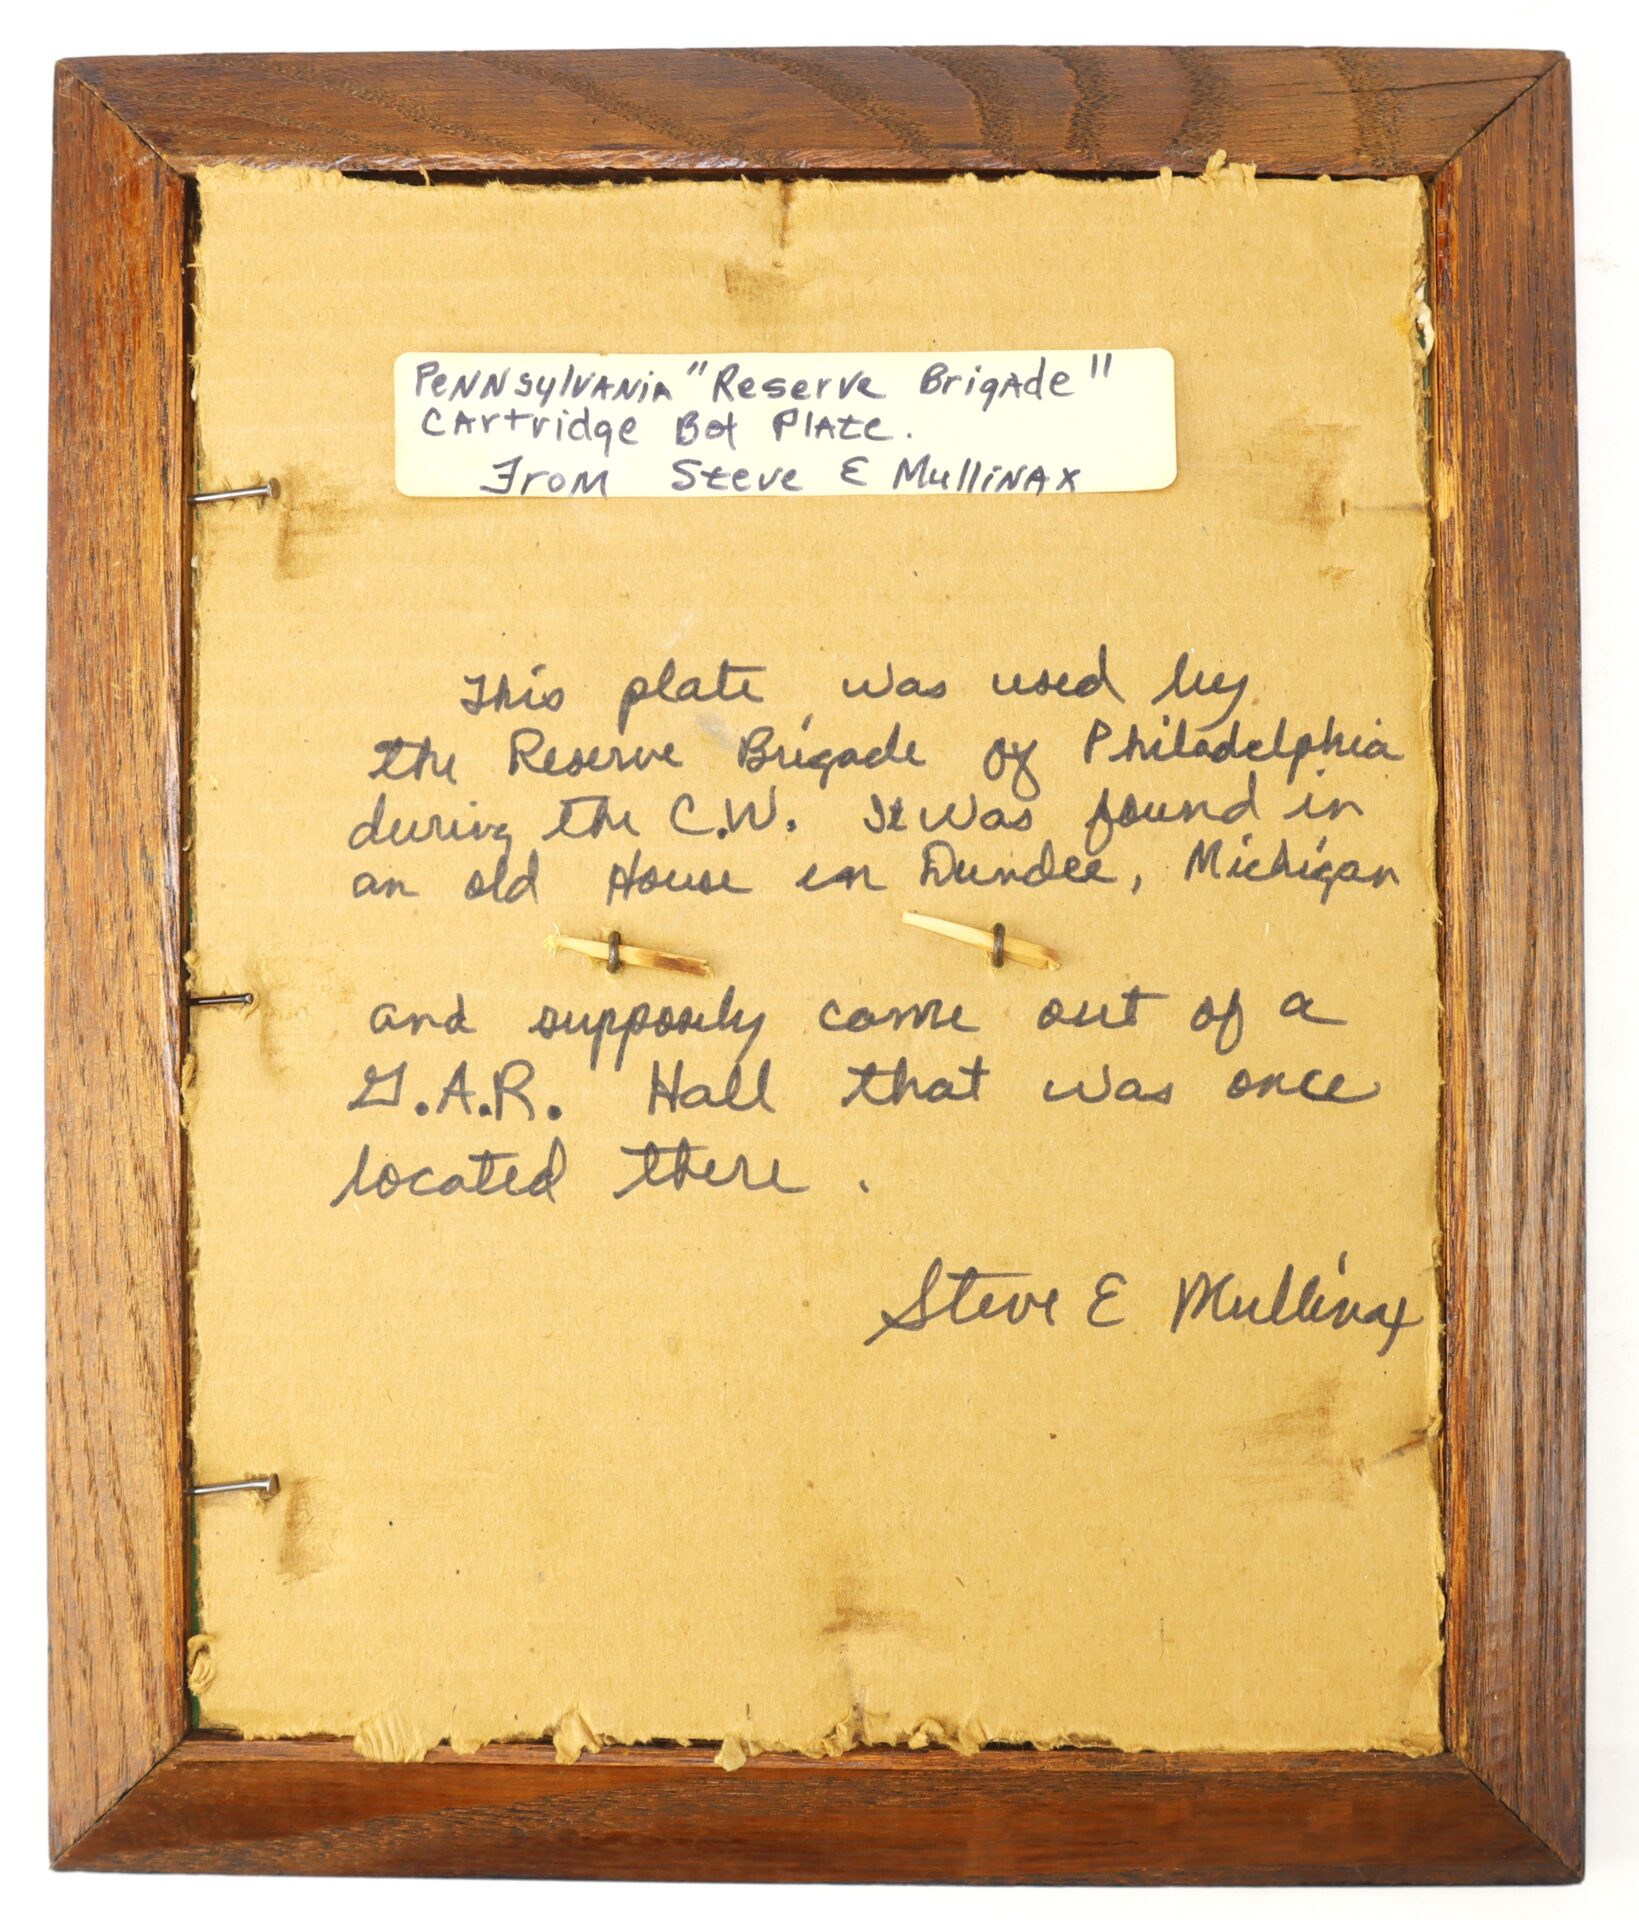 Pennsylvania "Reserve Brigade"
Cartridge Box Plate.
From Steve E Mullinax
This plate was used by
the Reserve Brigade of Philadelphia
during the C.W. It was found in
an old House in Dundee, Michigan
and supposely came out of a
G.A.R. Hall that was once
located there.
Steve E Mullinax